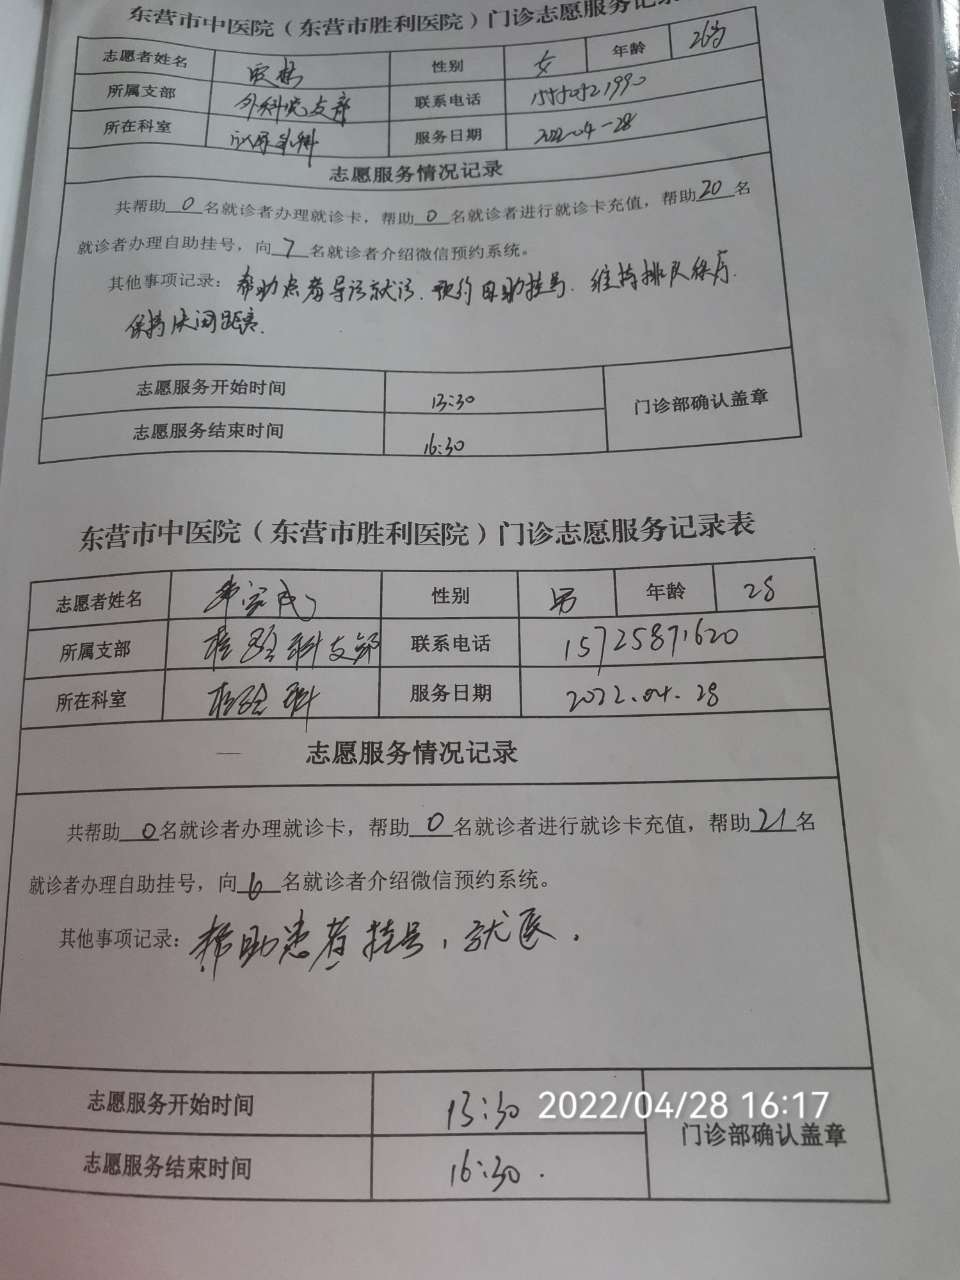 东营市中医院（东营市胜利医院）门诊志愿服务记录
志愿者姓名 性别 女 年龄 26岁
所属支部 外科党支部 联系电话
所在科室 科 服务日期 2022-04-28
志愿服务情况记录
共帮助 0 名就诊者办理就诊卡，帮助 0 名就诊者进行就诊卡充值，帮助 20 名
就诊者办理自助挂号，向 7 名就诊者介绍微信预约系统。
其他事项记录：帮助患者导诊就诊、预约自助挂号、维持排队秩序、
保持 间距离.
志愿服务开始时间 13:30 门诊部确认盖章
志愿服务结束时间 16:30
东营市中医院（东营市胜利医院）门诊志愿服务记录表
志愿者姓名 性别 男 年龄 28
所属支部 检验科支部 联系电话 15725871620
所在科室 检验科 服务日期 2022.04.28
志愿服务情况记录
共帮助 0 名就诊者办理就诊卡，帮助 0 名就诊者进行就诊卡充值，帮助 21 名
就诊者办理自助挂号，向 6 名就诊者介绍微信预约系统。
其他事项记录：帮助患者挂号，就医.
志愿服务开始时间 13:30 2022/04/28 16:17
门诊部确认盖章
志愿服务结束时间 16:30.